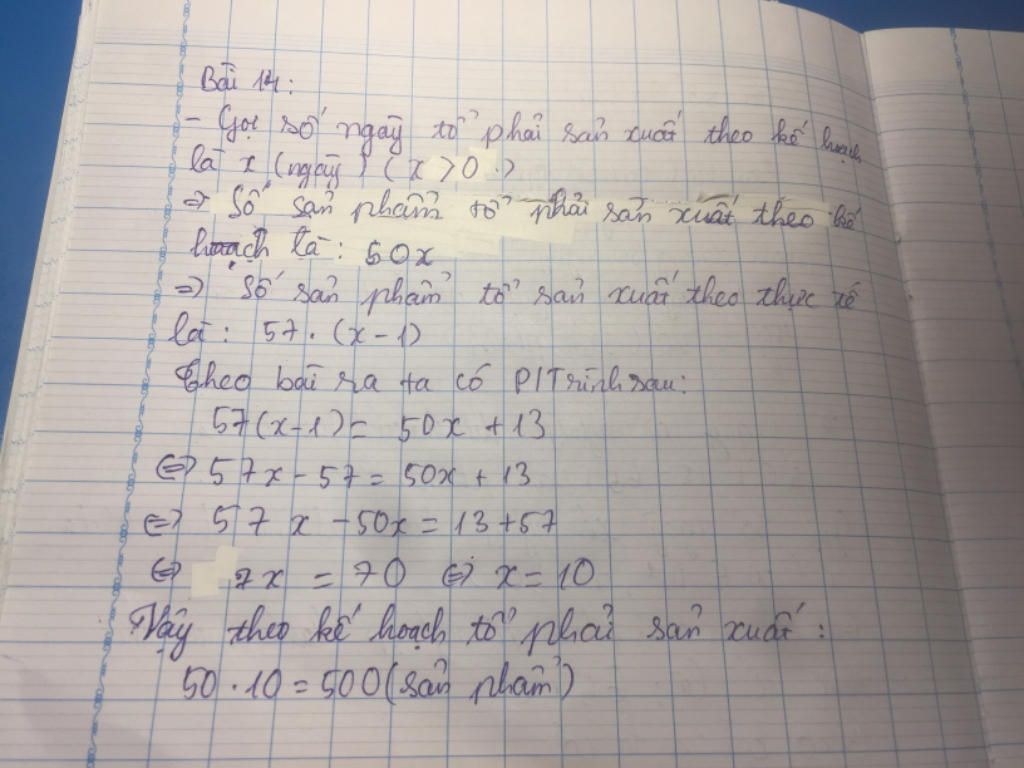 Bài 14:
- Gọi số ngày tổ phải sản xuất theo kế hoạch
là x (ngày) (x > 0.)
=> Số sản phẩm tổ phải sản xuất theo kế
hoạch là: 50x
=> Số sản phẩm tổ sản xuất theo thực tế
là: 57.(x-1)
Theo bài ra ta có P/Trình sau:
57(x-1) = 50x + 13
<=> 57x - 57 = 50x + 13
<=> 57x - 50x = 13 + 57
<=> 7x = 70 <=> x = 10
Vậy theo kế hoạch tổ phải sản xuất:
50.10 = 500 (sản phẩm)